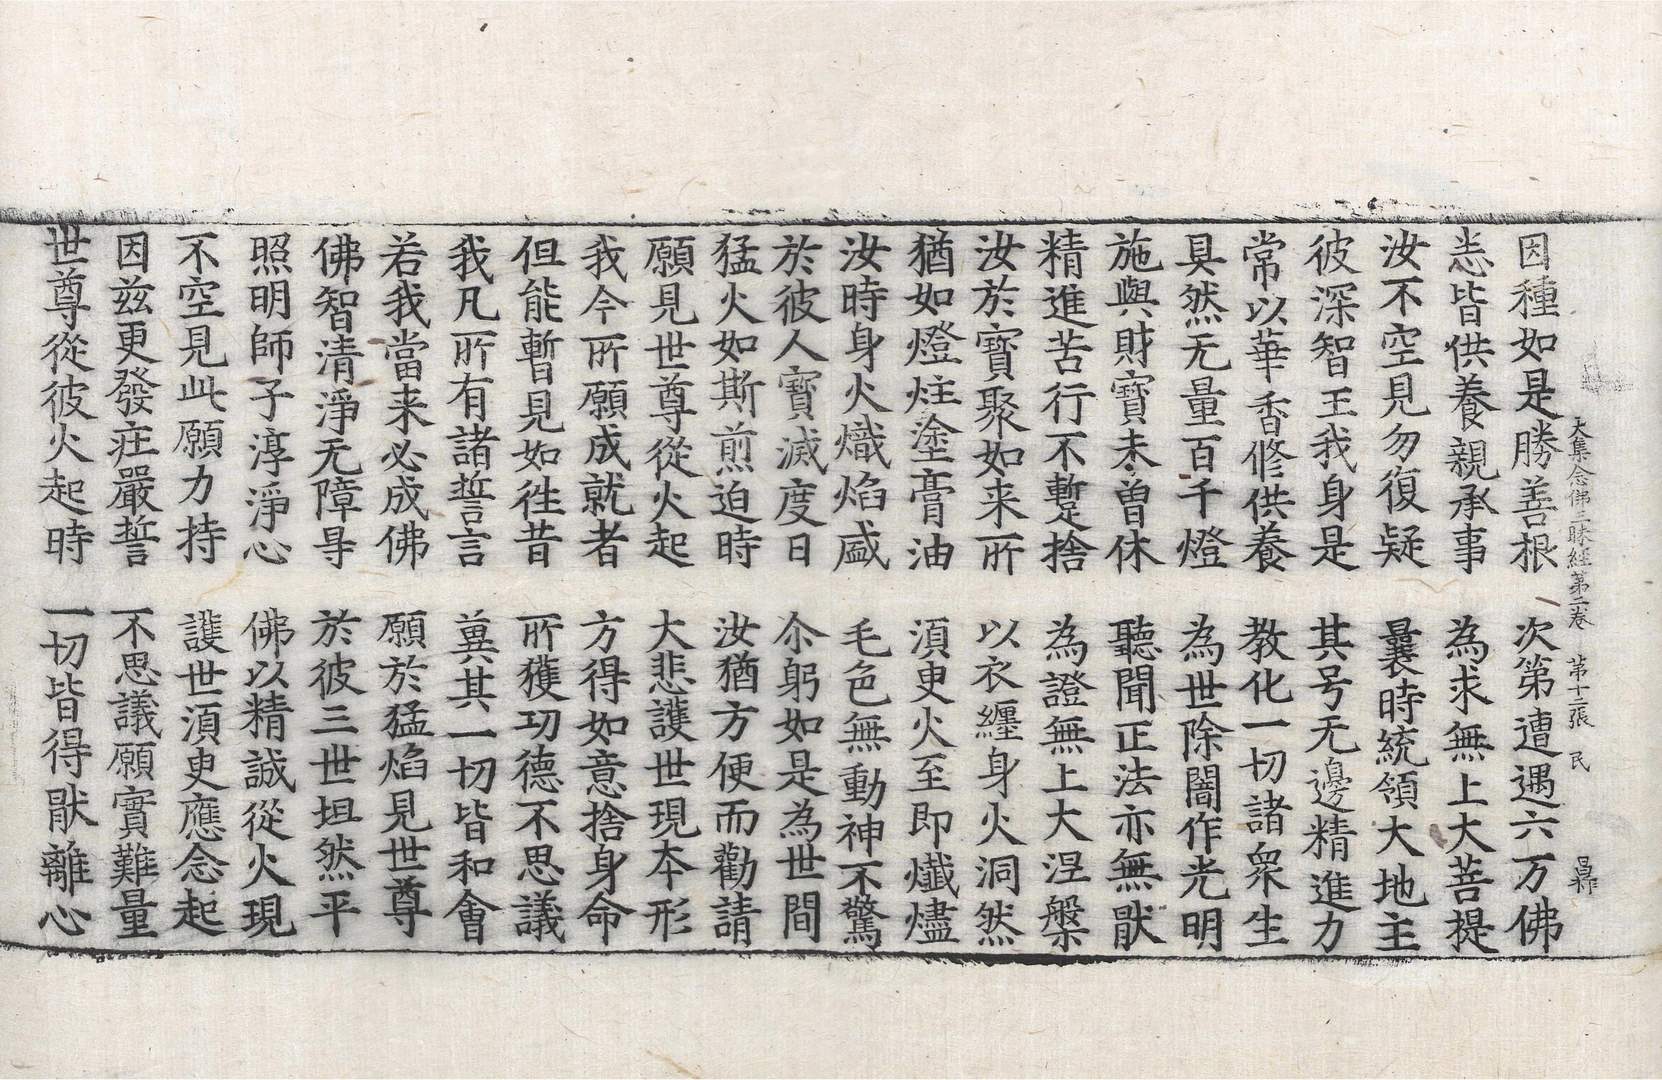 大集念佛三昧經第二卷　第十二張　民
因種如是勝善根　次第遭遇六万佛
恙皆供養親承事　為求無上大菩提
汝不空見勿復疑　曩時統領大地主
彼深智王我身是　其号无邊精進力
常以華香修供養　教化一切諸衆生
具然无量百千燈　為世除闇作光明
施與財寶未曽休　聽聞正法亦無猒
精進苦行不蹔捨　為證無上大涅槃
汝於寶聚如来所　以衣纏身火洞然
猶如燈炷塗膏油　湏臾火至即爊燼
汝時身火熾焰盛　毛色無動神不驚
於彼人寶滅度日　尒躬如是為世間
猛火如斯煎迫時　汝猶方便而勸請
願見世尊從火起　大悲護世現本形
我今所願成就者　方得如意捨身命
但能暫見如徃昔　所獲功德不思議
我凡所有諸誓言　冀其一切皆和會
若我當来必成佛　願於猛焰見世尊
佛智清淨无障㝵　於彼三世坦然平
照明師子淳淨心　佛以精誠從火現
不空見此願力持　護世湏臾應念起
因兹更發庄嚴誓　不思議願實難量
世尊從彼火起時　一切皆得猒離心